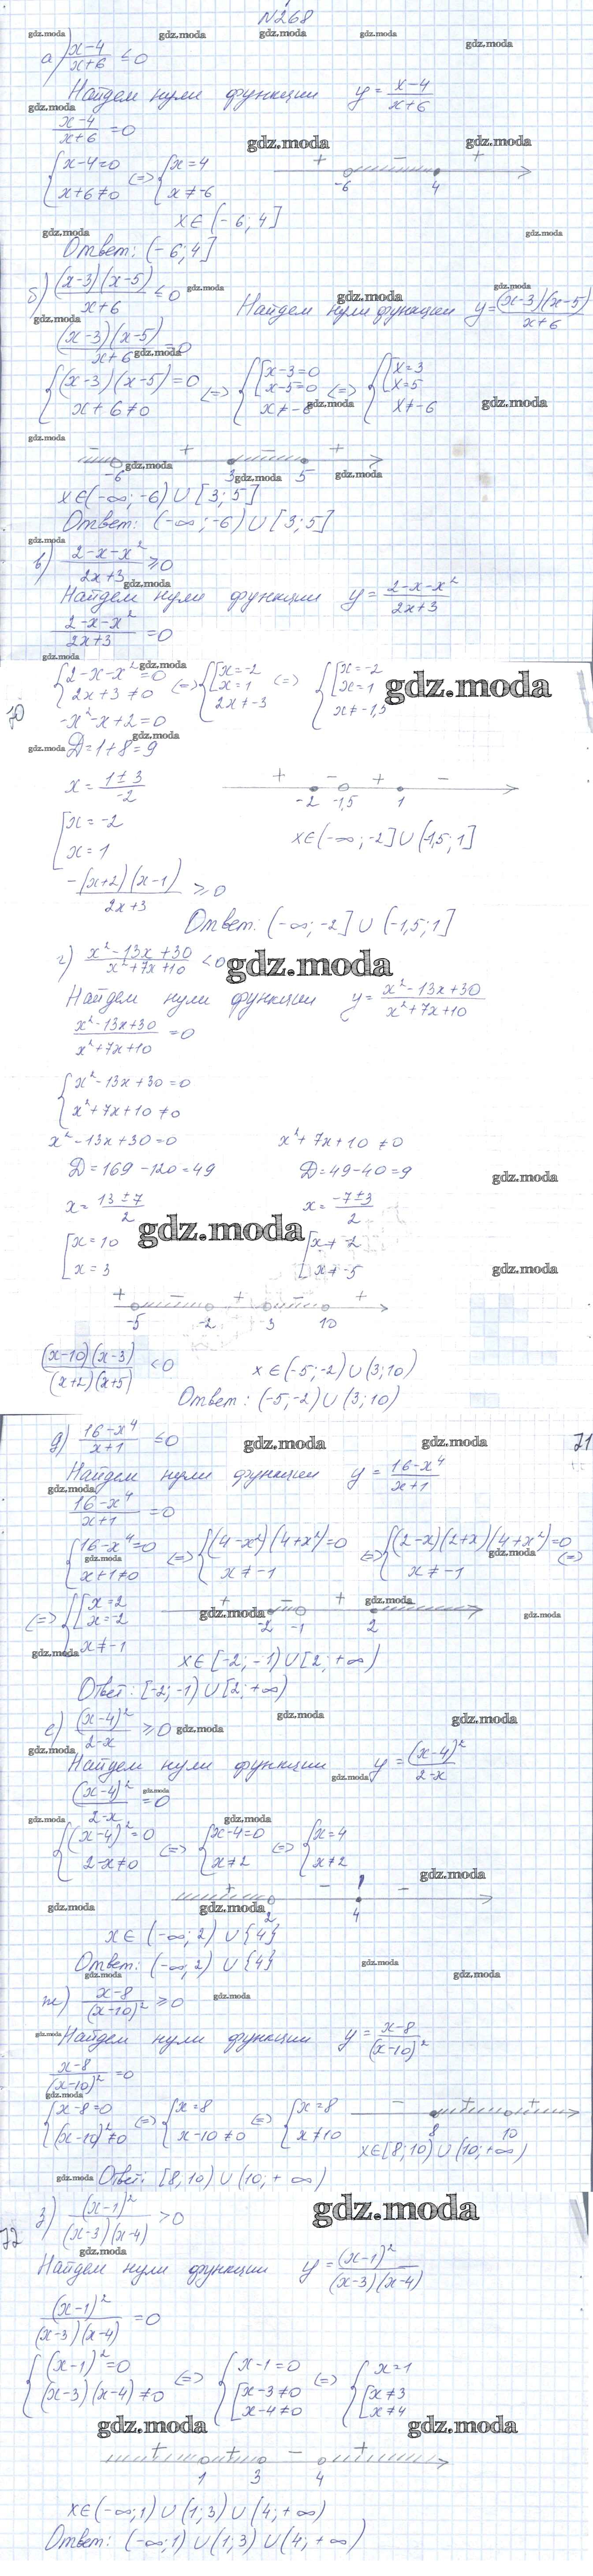 №268
а) (x-4)/(x+6) ≤ 0
Найдем нули функции y = (x-4)/(x+6)
(x-4)/(x+6) = 0
{x-4=0 {x=4
{x+6≠0 (=> {x≠-6
+ - +
-6 4
x∈(-6; 4]
Ответ: (-6; 4]
б) (x-3)(x-5)/(x+6) ≤ 0 Найдем нули функции y = (x-3)(x-5)/(x+6)
(x-3)(x-5)/(x+6) = 0
{(x-3)(x-5)=0 (=> {[x-3=0 x-5=0 (=> {[x=3 x=5
{x+6≠0 x≠-6 x≠-6
- + - +
-6 3 5
x∈(-∞; -6) ∪ [3; 5]
Ответ: (-∞; -6) ∪ [3; 5]
в) (2-x-x²)/(2x+3) ≥ 0
Найдем нули функции y = (2-x-x²)/(2x+3)
(2-x-x²)/(2x+3) = 0
70
{2-x-x²=0 (=> {[x=-2 x=1 (=> {[x=-2 x=1
{2x+3≠0 2x≠-3 x≠-1,5
-x²-x+2=0
Д=1+8=9
x = (1±3)/(-2)
+ - + -
-2 -1,5 1
[x=-2
[x=1
x∈(-∞; -2] ∪ (-1,5; 1]
-(x+2)(x-1)/(2x+3) ≥ 0
Ответ: (-∞; -2] ∪ (-1,5; 1]
г) (x²-13x+30)/(x²+7x+10) < 0
Найдем нули функции y = (x²-13x+30)/(x²+7x+10)
(x²-13x+30)/(x²+7x+10) = 0
{x²-13x+30=0
{x²+7x+10≠0
x²-13x+30=0 x²+7x+10≠0
Д=169-120=49 Д=49-40=9
x = (13±7)/2 x = (-7±3)/2
[x=10 [x≠-2
[x=3 [x≠-5
+ - + - +
-5 -2 3 10
(x-10)(x-3)/(x+2)(x+5) < 0 x∈(-5; -2) ∪ (3; 10)
Ответ: (-5; -2) ∪ (3; 10)
д) (16-x⁴)/(x+1) ≤ 0 71
Найдем нули функции y = (16-x⁴)/(x+1)
(16-x⁴)/(x+1) = 0
{16-x⁴=0 (=> {(4-x²)(4+x²)=0 (=> {(2-x)(2+x)(4+x²)=0
{x+1≠0 x≠-1 x≠-1 (=>
(=> {[x=2 x=-2
x≠-1
+ - + -
-2 -1 2
x∈[-2; -1) ∪ [2; +∞)
Ответ: [-2; -1) ∪ [2; +∞)
е) (x-4)²/(2-x) ≥ 0
Найдем нули функции y = (x-4)²/(2-x)
(x-4)²/(2-x) = 0
{(x-4)²=0 (=> {x-4=0 (=> {x=4
{2-x≠0 x≠2 x≠2
+ - -
2 4
x∈(-∞; 2) ∪ {4}
Ответ: (-∞; 2) ∪ {4}
ж) (x-8)/(x-10)² ≥ 0
Найдем нули функции y = (x-8)/(x-10)²
(x-8)/(x-10)² = 0
{x-8=0 (=> {x=8 (=> {x=8
{(x-10)²≠0 x-10≠0 x≠10
- + +
8 10
x∈[8; 10) ∪ (10; +∞)
Ответ: [8; 10) ∪ (10; +∞)
72
з) (x-1)²/(x-3)(x-4) > 0
Найдем нули функции y = (x-1)²/(x-3)(x-4)
(x-1)²/(x-3)(x-4) = 0
{(x-1)²=0 (=> {x-1=0 (=> {x=1
{(x-3)(x-4)≠0 [x-3≠0 x-4≠0 [x≠3 x≠4
+ + - +
1 3 4
x∈(-∞; 1) ∪ (1; 3) ∪ (4; +∞)
Ответ: (-∞; 1) ∪ (1; 3) ∪ (4; +∞)
gdz.moda